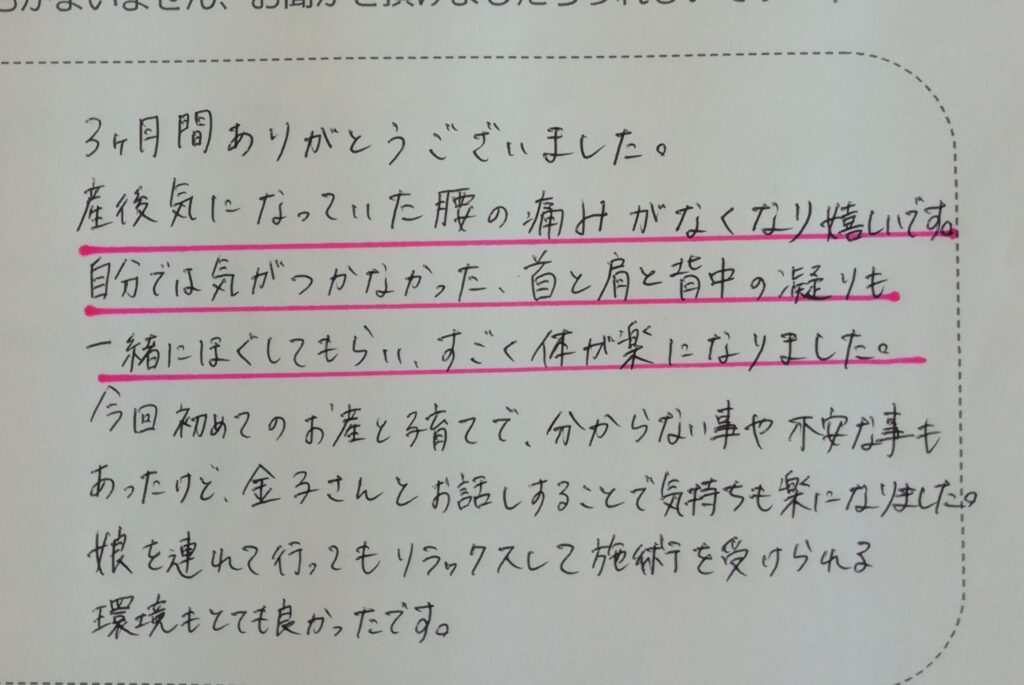 3ヶ月間ありがとうございました。
産後気になっていた腰の痛みがなくなり嬉しいです。
自分では気がつかなかった、首と肩と背中の凝りも
一緒にほぐしてもらい、すごく体が楽になりました。
今回初めてのお産と子育てで、分からない事や不安な事も
あったけど、金子さんとお話しすることで気持ちも楽になりました。
娘を連れて行ってもリラックスして施術を受けられる
環境もとても良かったです。